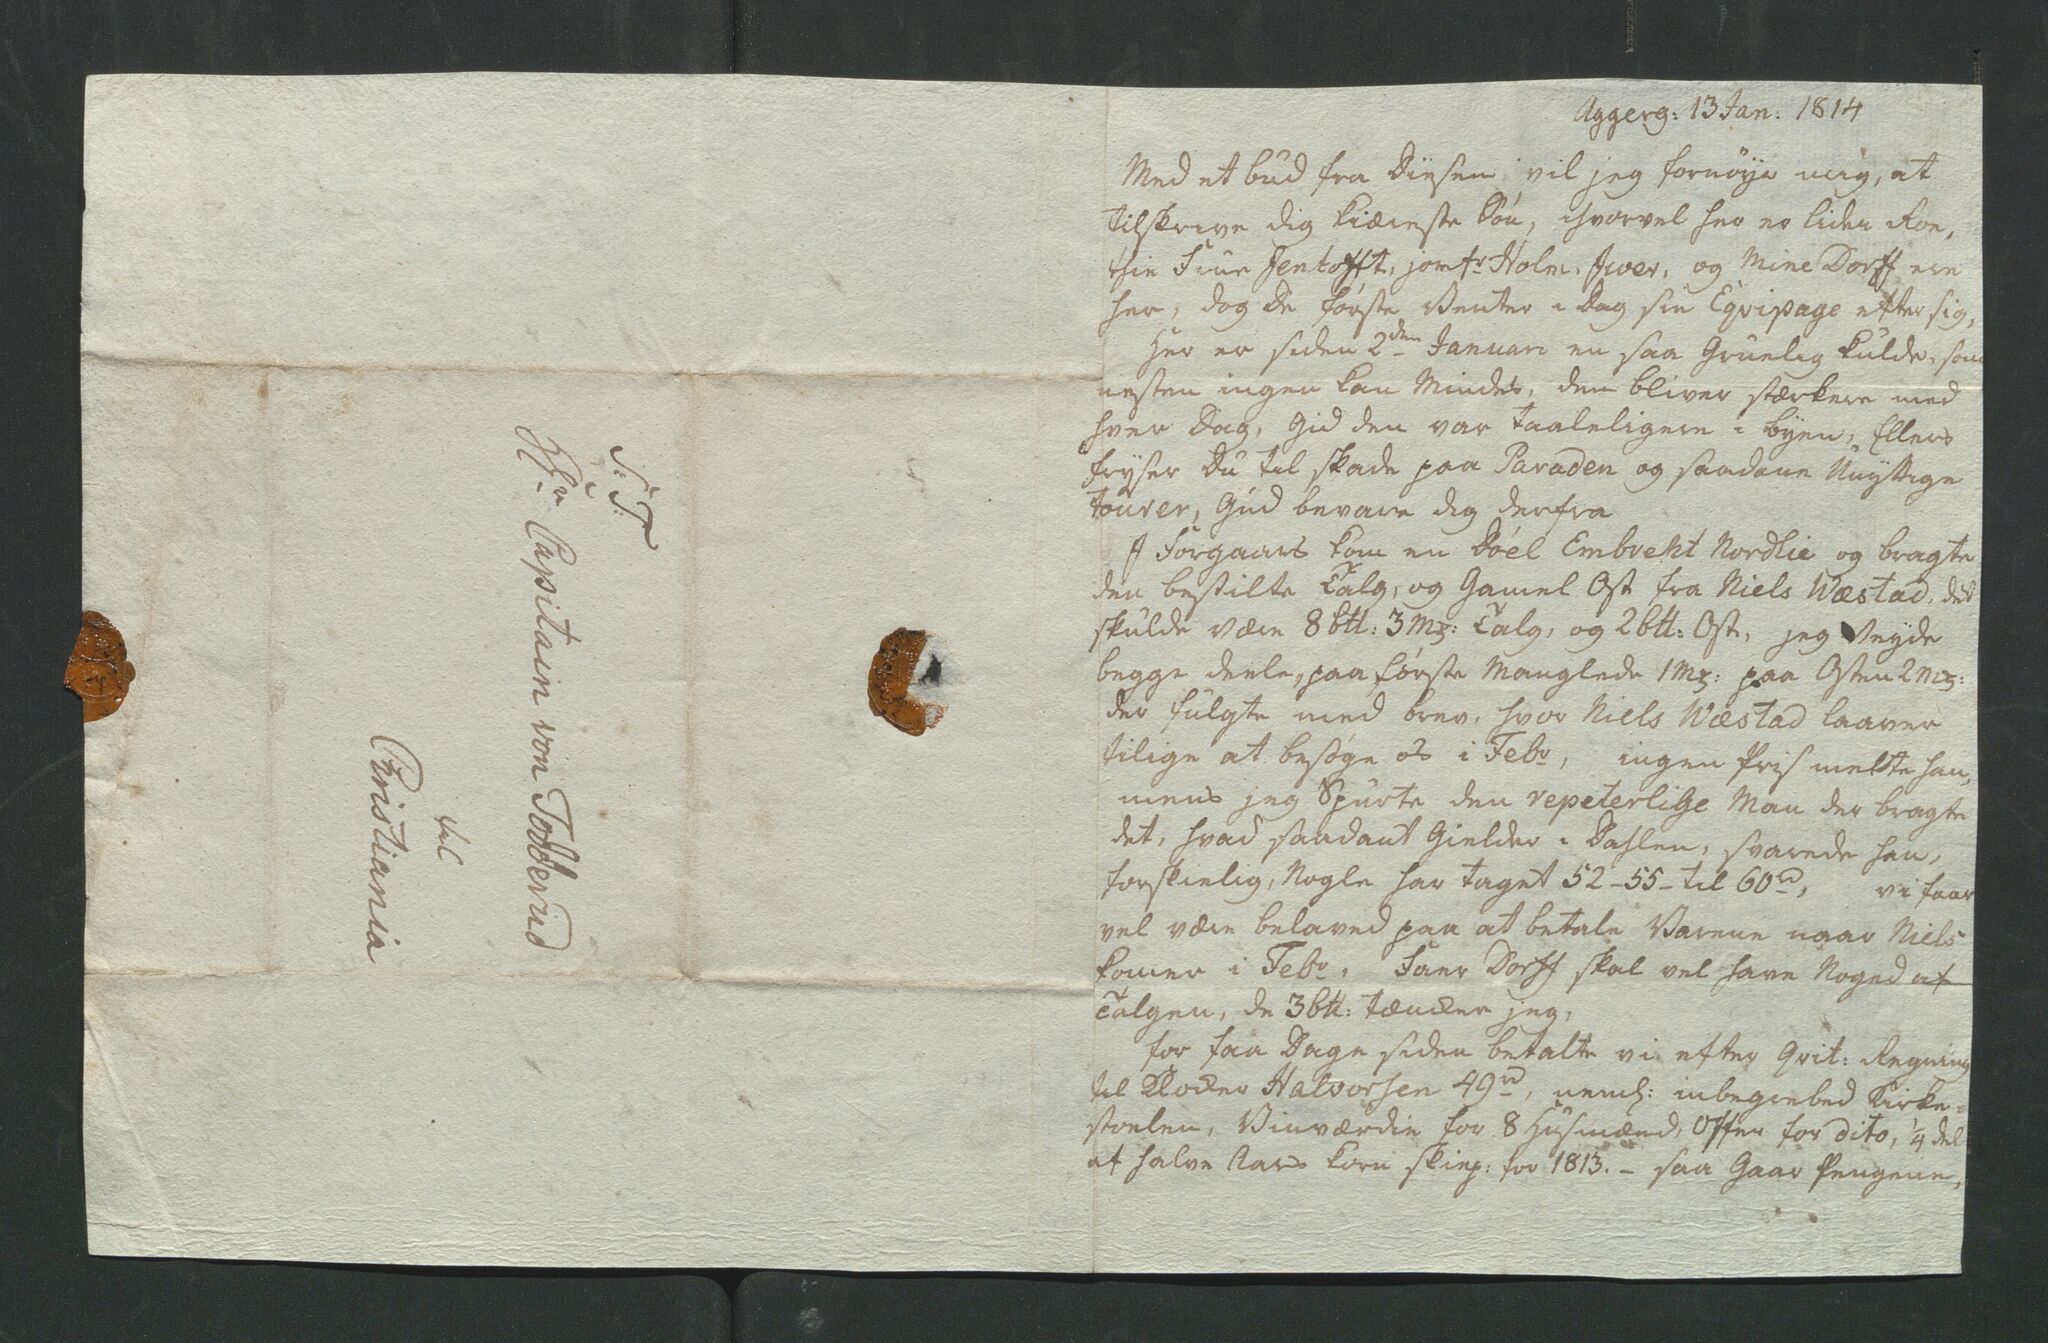 S: T:
Hr. Capitain von Todderud
til
Christiania
Aggerg: 13 Jan: 1814
Med et bud fra Diesen vil jeg fornöye mig, at
tilskrive dig kiæreste Sön, ihvorvel her er liden Roe,
thi Frue Jentofft, jomfr Holm, Iver, og Mine Dorff ere
her, dog De förste Venter i Dag sin Eqvipage efter sig,
Her er siden 2den Januari en saa Gruelig kulde, som
nesten ingen kan Mindes, den bliver stærkere med
hver Dag, Gid den var taaleligere i byen, Ellers
fryser Du til skade paa Paraden og saadane Unyttige
tourer, Gud bevare dig derfra
I Forgaars kom en Döel Embreht Nordlie og bragte
den bestilte Talg, og Gamel Ost fra Niels Wæstad, det
skulde være 8 btt: 3 mȝ: Talg, og 2 btt: Ost, jeg Veyde
begge deele, paa förste Manglede 1 Mȝ: paa Osten 2 mȝ:
der fulgte med brev, hvor Niels Wæstad laaver
tilige at besöge os i Febr, ingen Pris meldte han,
mens jeg Spurte den repeterlige Man der bragte
det, hvad saadant Gielder i Dahlen, svarede han,
forskielig, Nogle har taget 52 - 55 - til 60 rd, vi faar
vel være belaved paa at betale Varene naar Niels
komer i Febr, Faer Dorff skal vel have Noged af
Talgen, de 3 btt: tæncker jeg,
for faa Dage siden betalte vi efter Qvit: Regning
til Klocker Halvorsen 49 rd, neml: inbegrebed Kirke-
stoelen, Vinværdie for 8 Husmænd, Offer for dito, 1/4 del
af halve Aars korn skiep: for 1813. - saa Gaar Pengene,